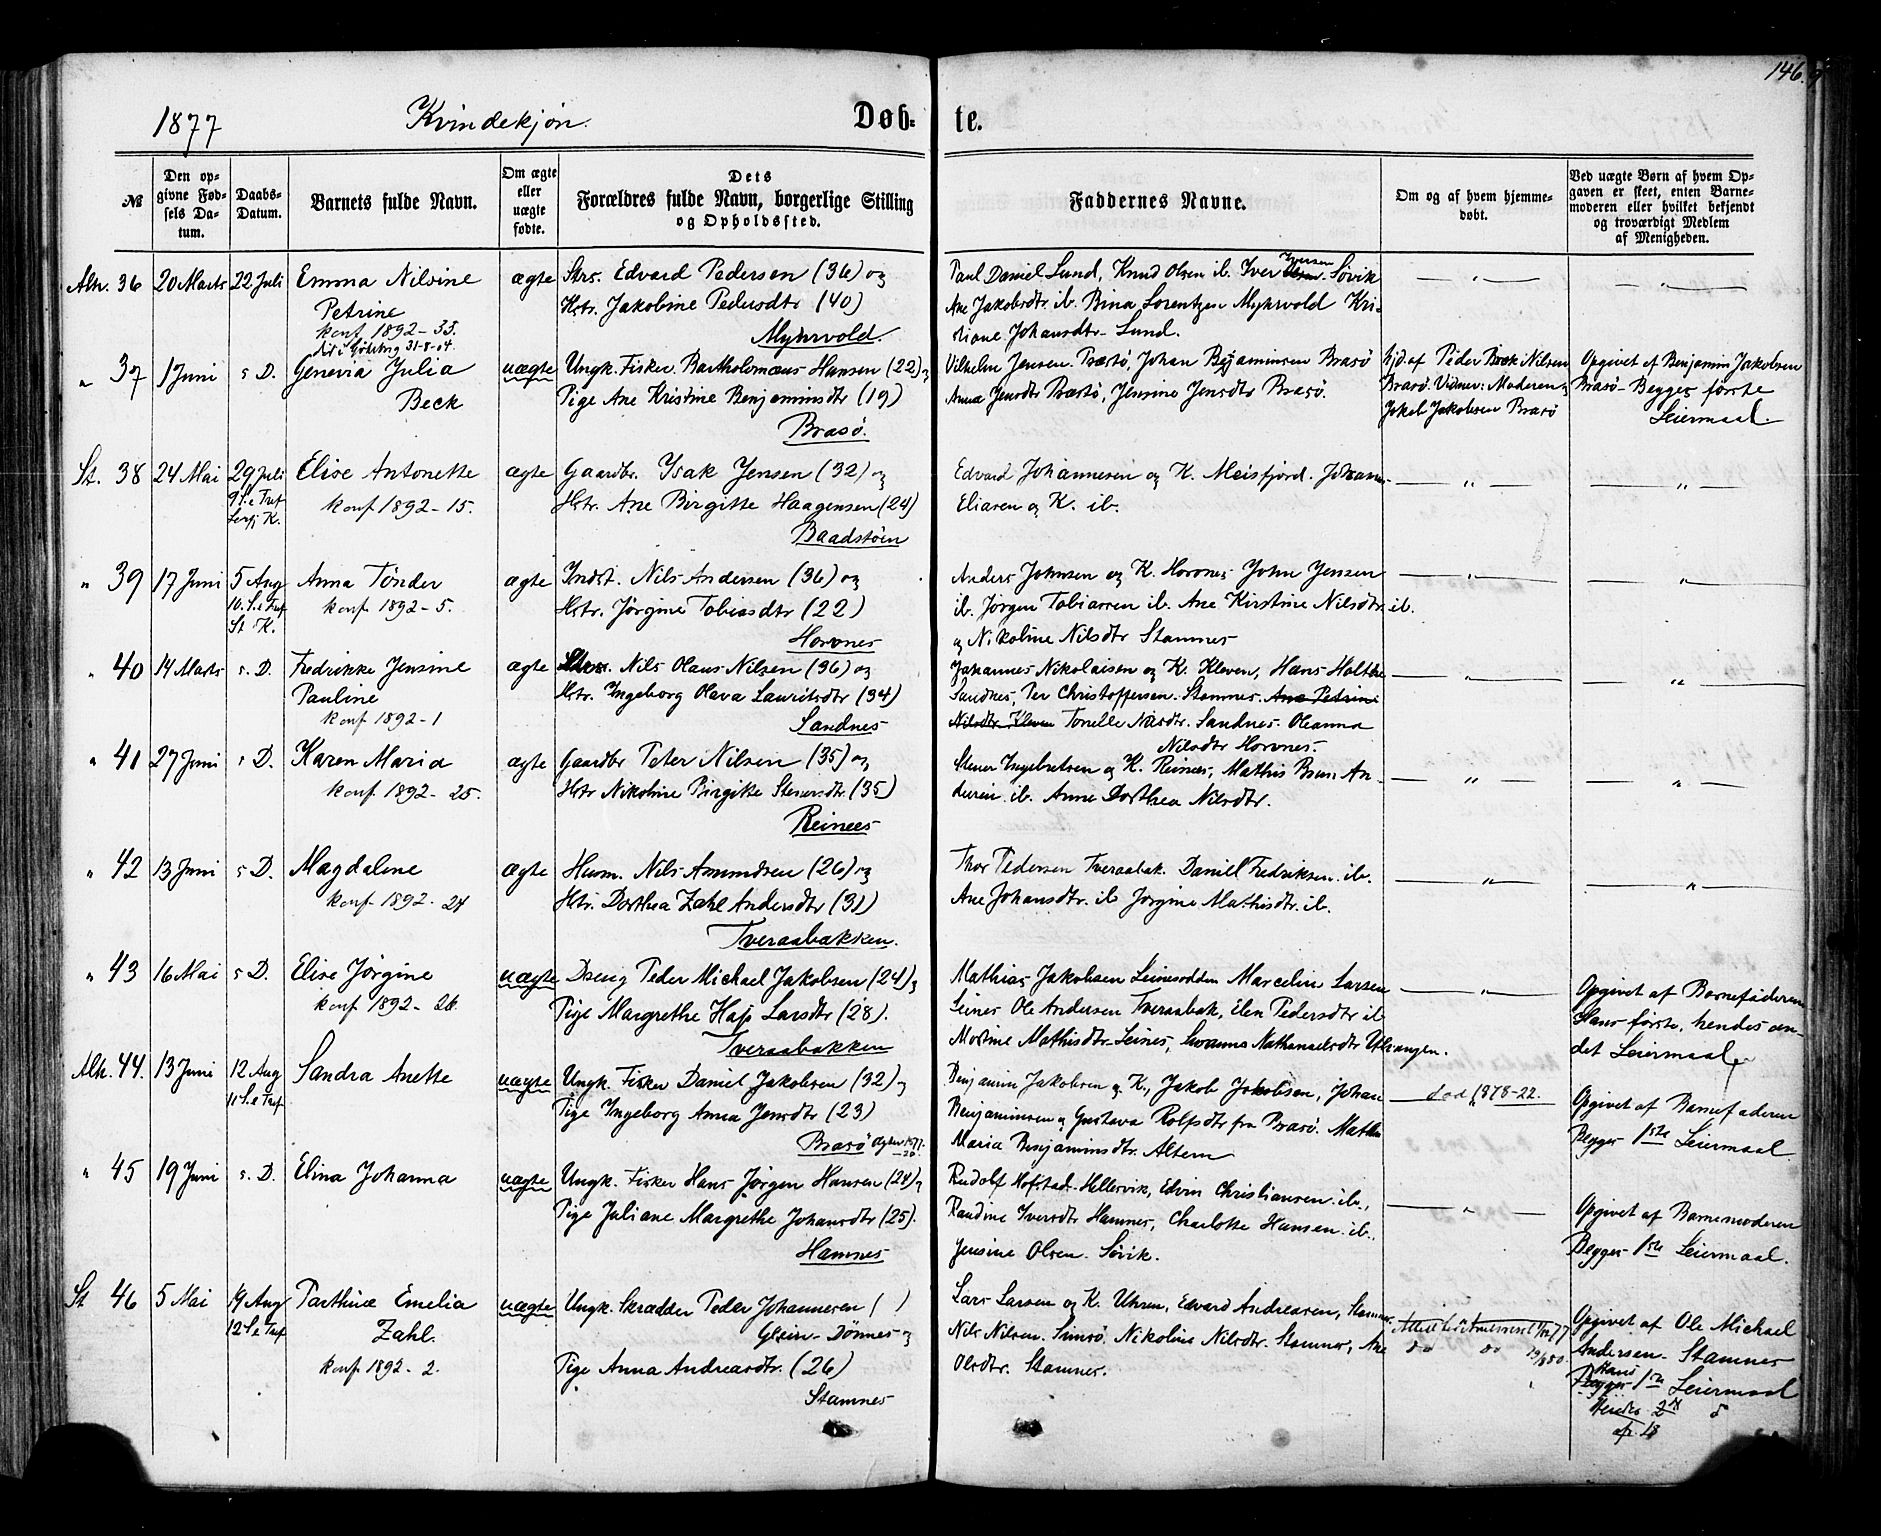 146.
1877 Kvindekjøn. Døb- te.
№
Den op-
givne Fød-
sels Da-
tum.
Daabs-
Datum.
Barnets fulde Navn.
Om ægte
eller
uægte
fødte.
Dets
Forældres fulde Navn, borgerlige Stilling
og Opholdssted.
Faddernes Navne.
Om og af hvem hjemme-
døbt.
Ved uægte Børn af hvem Op-
gaven er skeet, enten Barne-
moderen eller hvilket bekjendt
og troværdigt Medlem
af Menigheden.
Alh. 36 20 Marts 22 Juli Emma Nilsine
Petrine
konf 1892-33.
ægte Strs. Edvard Pedersen (36) og
Hstr. Jakobine Pedersdtr (40)
Myhrvold.
Paul Daniel Lund, Knud Olsen ib. Iver Iversen Søvik
Ane Jakobsdtr ib. Bina Lorentzen Myhrvold Kri-
stiane Johansdtr Lund.
— " —
— " —
" 37 1 Juni s D. Genevia Julia
Beck
uægte Ungk. Fisker Bartholomæus Hansen (22) og
Pige Ane Kristine Benjaminsdtr (19)
Brasø.
Vilhelm Jensen Prestø, Johan Benjaminsen Brasø
Anna Jensdtr Prestø, Jensine Jensdtr Brasø.
hjd. af Peder Beck Nilsen
Brasø. Vidner: Moderen og
Jakob Jakobsen Brasø
Opgivet af Benjamin Jakobsen
Brasø- Begges første
Leiermaal.
St. 38 24 Mai 29 Juli
9 S. e Tref
K.
Elise Antonette
konf 1892-15.
ægte Gaardbr. Isak Jensen (32) og
Hstr. Ane Birgitte Haagensen (24)
Baadstøen
Edvard Johannesen og K. Meisfjord. Johan
Eliasen og K. ib.
— " —
— " —
" 39 17 Juni 5 Aug
10. S. e Tref.
St K.
Anna Tønder
konf 1892-5.
ægte Indst. Nils Andersen (36) og
Hstr. Jørgine Tobiasdtr (22)
Hovnes
Anders Johnsen og K. Hovnes John Jensen
ib. Jørgen Tobiassen ib. Ane Kirstine Nilsdtr ib.
og Nikoline Nilsdtr Stamnes
— " —
— " —
" 40 14 Marts s. D. Fredrikke Jensine
Pauline
konf 1892-1
ægte Nils Olaus Nilsen (36) og
Hstr. Ingeborg Olava Lauritsdtr (34)
Sandnes
Johannes Nikolaisen og K. Kleven, Hans Holthe
Sandnes, Per Christoffersen Stamnes. Ane Petrine
Nilsdtr Kleven Tonelle Nilsdtr. Sandnes. Oleanna
Nilsdtr Hovnes.
— " —
— " —
" 41 27 Juni s D. Karen Maria
konf 1892- 25.
ægte Gaardbr Peter Nilsen (35) og
Hstr Nikoline Birgitte Stenersdtr (35)
Reinees
Stener Ingebretsen og K. Reinees, Mathis Brun An-
dersen ib. Anne Dorthea Nilsdtr.
— " —
— " —
" 42 13 Juni s D. Magdalene
konf 1892. 24
ægte Husm. Nils Amundsen (26) og
Hstr. Dorthea Zahl Andersdtr (31)
Tveraabakken.
Thor Pedersen Tveraabak. Daniel Fredriksen ib.
Ane Johansdtr. ib Jørgine Mathisdtr. ib.
— " —
— " —
" 43 16 Mai s D. Elise Jørgine
konf 1892- 26.
uægte Dreng Peder Michael Jakobsen (24) og
Pige Margrethe Larsdtr (28).
Tveraabakken
Mathias Jakobsen Leinesodden Marcelius Larsen
Leines Ole Andersen Tveraabak, Elen Pedersdtr ib
Mortine Mathisdtr Leines, Susanna Nathanaelsdtr
— " —
Opgivet af Barnefaderen
Hans første, hendes an-
det Leiermaal
Alh. 44. 13 Juni 12 Aug
11 S. e Tref.
Sandra Anette
uægte Ungk. Fisker Daniel Jakobsen (32) og
Pige Ingeborg Anna Jensdtr (23)
Brasø
Benjamin Jakobsen og K., Jakob Jakobsen, Johan
Benjaminsen og Gustava Rolfsdtr fra Brasø. Mathea
Maria Benjaminsdtr. Altern
død 1878-22.
Opgivet af Barnefaderen
Begges 1ste Leiermaal.
" 45 19 Juni s. D. Elina Johanna
uægte Ungk. Fisker Hans Jørgen Hansen (24) og
Pige Juliane Margrethe Johansdtr (25).
Hamnes
Rudolf Hofstad Hellervik, Edvin Christiansen ib.,
Raudine Iversdtr Hamnes, Charlotte Hansen ib.
Jensine Olsen Søvik.
— " —
Opgivet af Barnemoderen
Begges 1ste Leiermaal.
St 46 5 Mai 19 Aug
12 S. e Tref
Parthine Emelia
Zahl.
konf 1892. 2.
uægte Ungk. Skrædder Peder Johannesen ( )
Glein- Dønnes og
Pige Anna Andreasdtr. (26)
Stamnes
Lars Larsen og K. Uhren, Edvard Andreasen, Stamnes
Nils Nilsen. Nikoline Nilsdtr. Stamnes, Ane
Olsdtr. Stamnes.
Opgivet af Ole Michael
Andersen- Stamnes
Hans
Begges 1ste Leiermaal